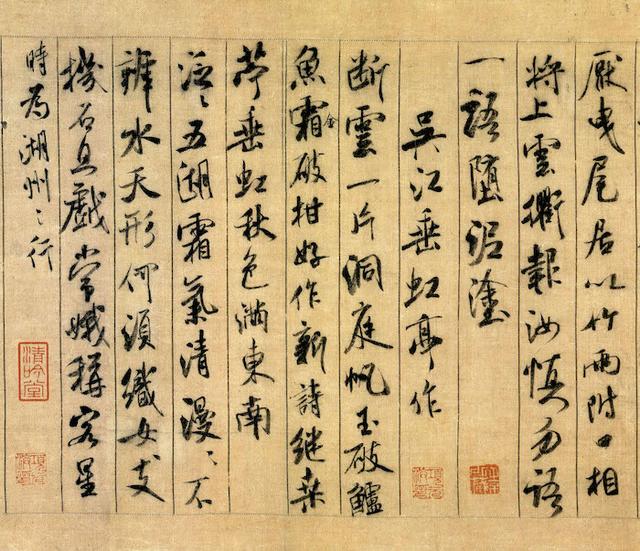 厭曳尾居以竹兩附口相
將上雲衢報汝慎勿語
一語墮泥塗
吳江垂虹亭作
斷雲一片洞庭帆玉破鱸
魚霜金破柑好作新詩繼桑
苧垂虹秋色滿東南
泛〻五湖霜氣清漫〻不
辨水天形何須織女支
機石且戲常娥稱客星
時為湖州之行
清吟堂